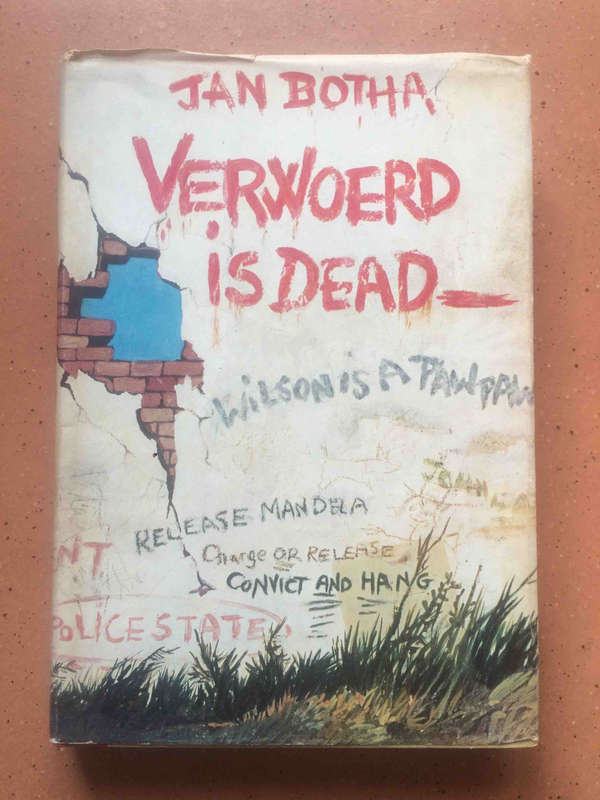 JAN BOTHA
VERWOERD
iS DEAD—
WILSON iS A PAWPAW
JOHN
RELEASE MANDELA
NT
Charge OR RELEASE
CONVICT AND HANG
POLICE STATE